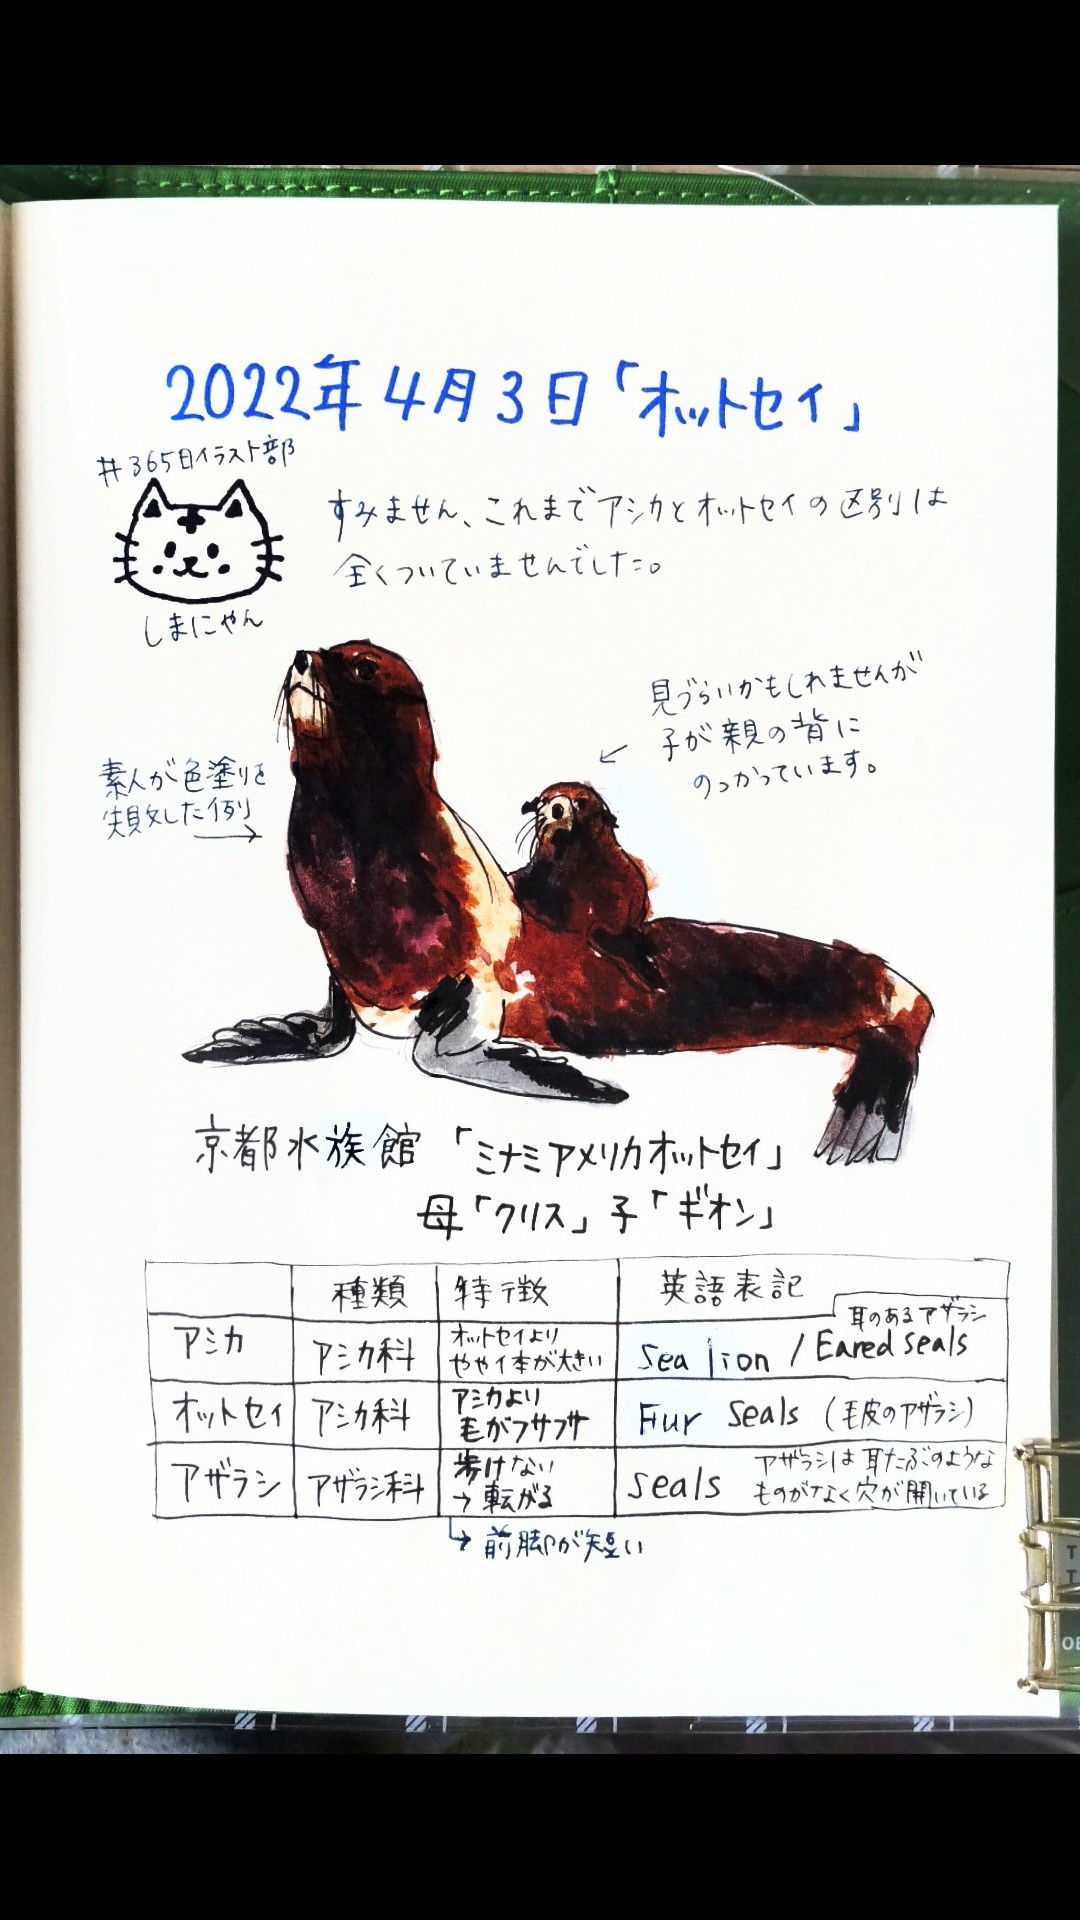 2022年4月3日「オットセイ」
#365日イラスト部
しまにゃん
すみません、これまでアシカとオットセイの区別は
全くついていませんでした。
見づらいかもしれませんが
子が親の背に
のっかっています。
素人が色塗りを
失敗した例
京都水族館「ミナミアメリカオットセイ」
母「クリス」子「ギオン」
種類 特徴 英語表記
アシカ アシカ科 オットセイより
やや体が大きい Sea lion / Eared seals
耳のあるアザラシ
オットセイ アシカ科 アシカより
毛がフサフサ Fur seals (毛皮のアザラシ)
アザラシ アザラシ科 歩けない
→転がる seals アザラシは耳たぶのような
ものがなく穴が開いている
前脚が短い